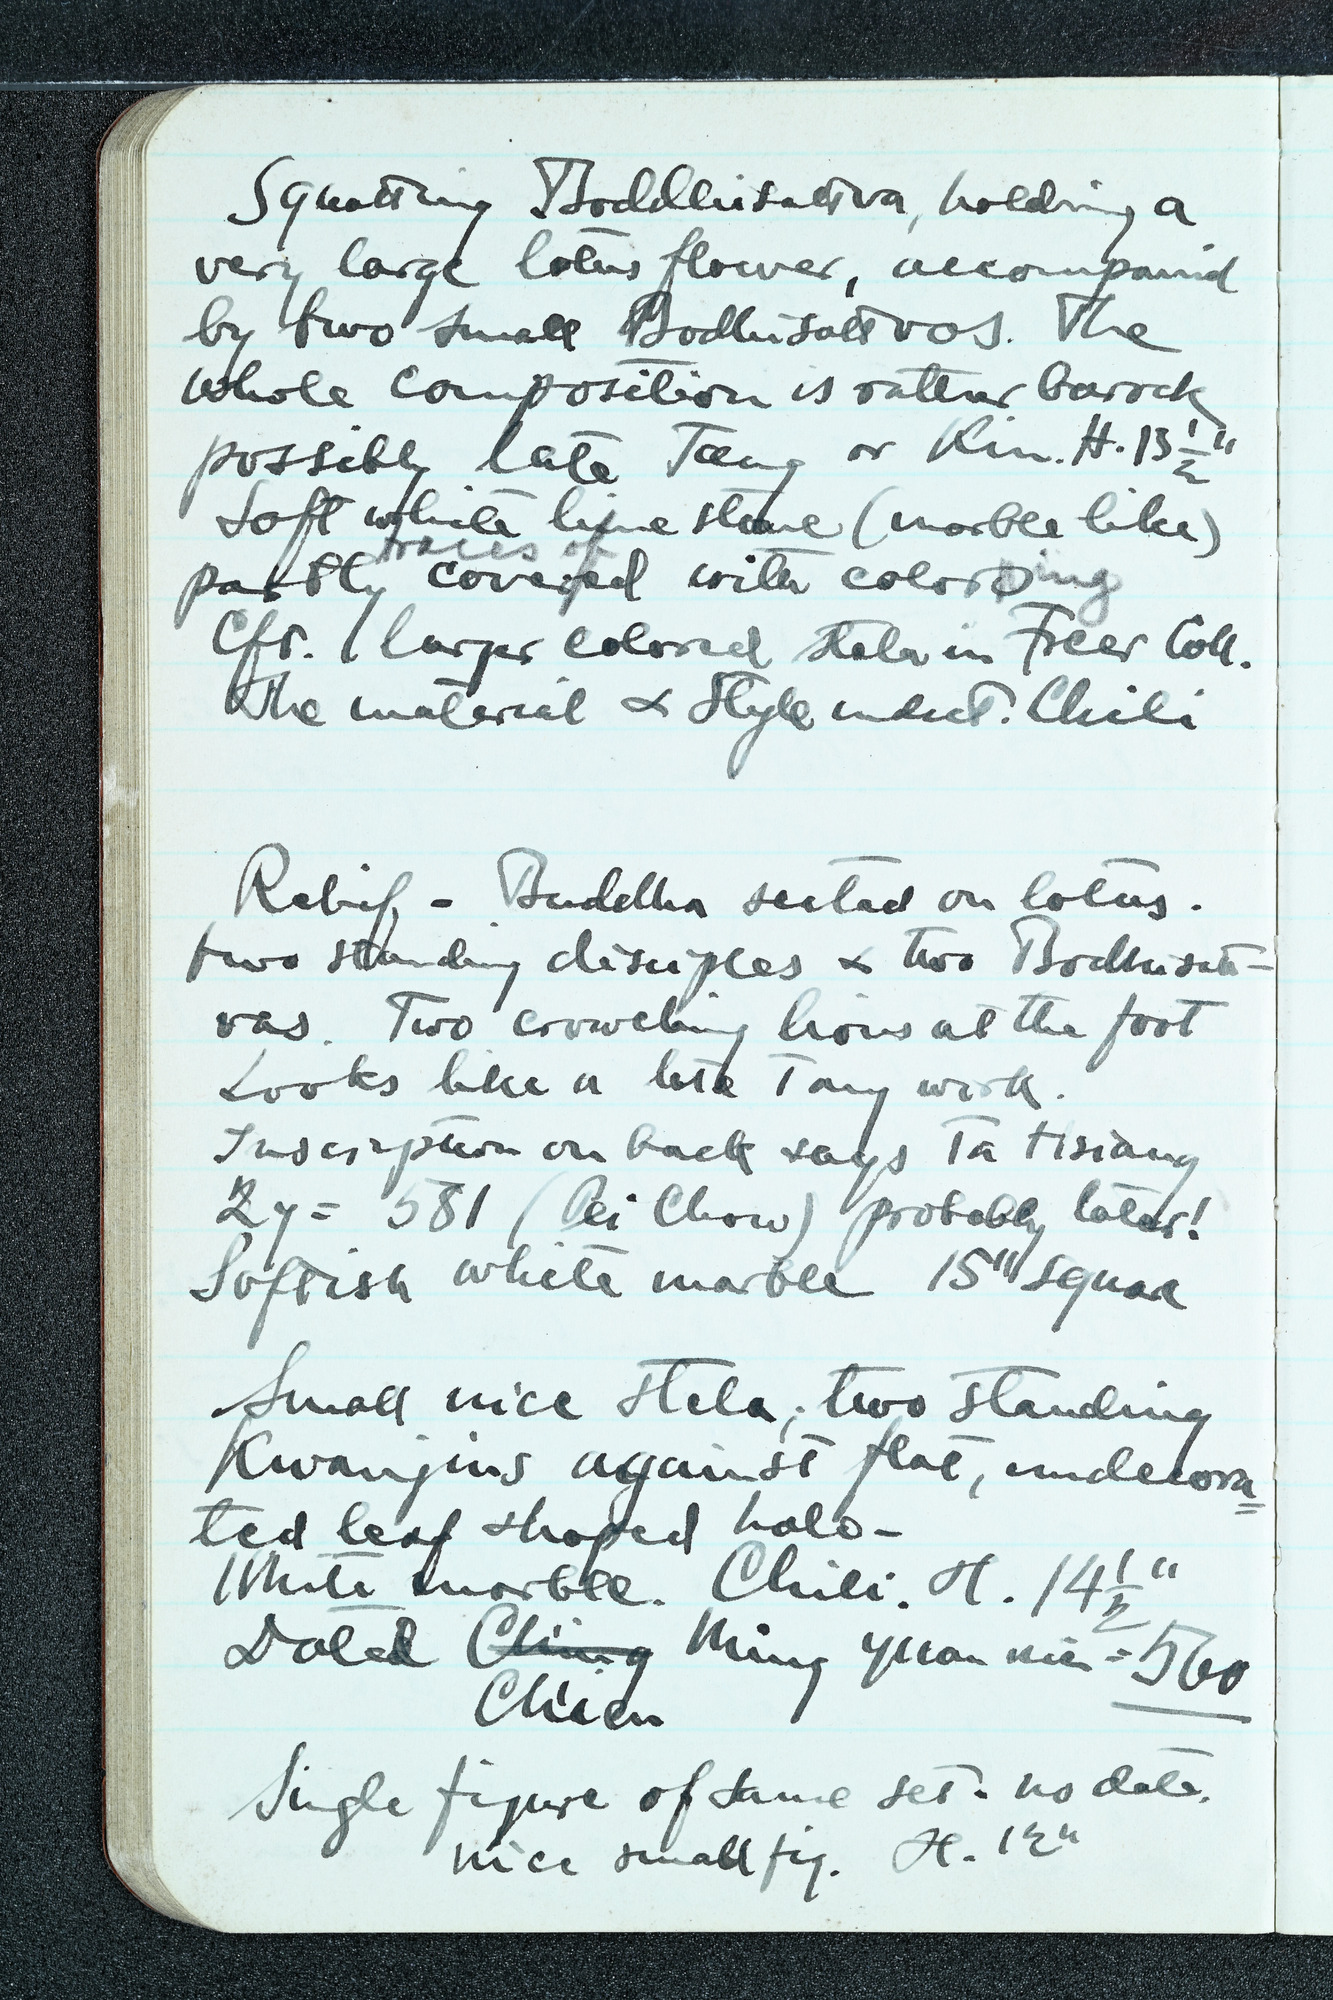 Squatting Boddhisattva, holding a
very large lotus flower, accompanied
by two small Bodhisattvas. The
whole composition is rather barock
possibly late Tang or Kin. H. 13 1/2"
Soft white lime stone (marble like)
traces of
partly covered with coloring
Cfr. larger colored stela in Freer Coll.
The material & style indicat. Chili
Relief - Buddha seated on lotus.
two standing disciples & two Bodhisatt-
vas. Two crowching lions at the foot
Looks like a late Tang work.
Inscription on back says Ta Hsiang
2 y = 581 (Pei Chow) probably later!
Softish white marble 15" square
Small nice stela, two standing
Kwanjins against flat, undecora=
ted leaf shaped halo-
White marble. Chili. H. 14 1/2"
Dated Ching Ming yuan nien = 560
Chien
Single figure of same set. no date.
nice small fig. H. 12"